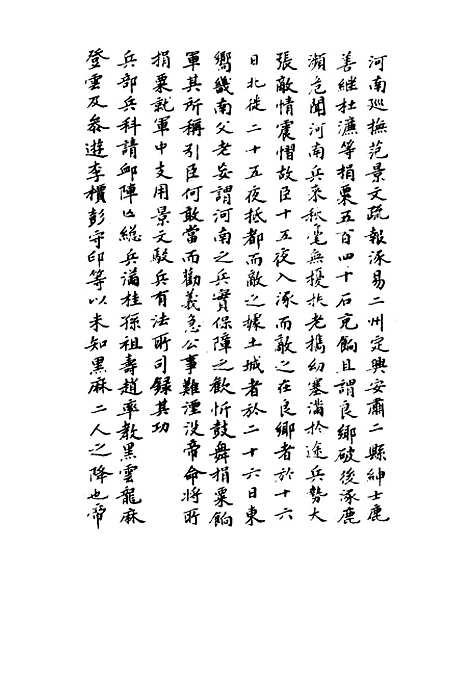 河南巡撫范景文疏報涿易二州定興安肅二縣紳士鹿
善継杜濂等捐粟五百四十石充餉且謂良鄉破後涿鹿
瀕危聞河南兵来秋毫無擾扶老攜幼塞滿於途兵勢大
張敵情震慴故臣十五夜入涿而敵之在良鄉者於十六
日北徙二十五夜抵都而敵之據土城者於二十六日東
嚮畿南父老妄謂河南之兵實保障之歡忻鼓舞捐粟餉
軍其所稱引臣何敢當而勸義急公事難湮没帝命将所
捐粟就軍中支用景文馭兵有法所司錄其功
兵部兵科請卹陣亡總兵滿桂孫祖壽趙率教黑雲龍麻
登雲及叅遊李檟彭守印等以未知黑麻二人之降也帝